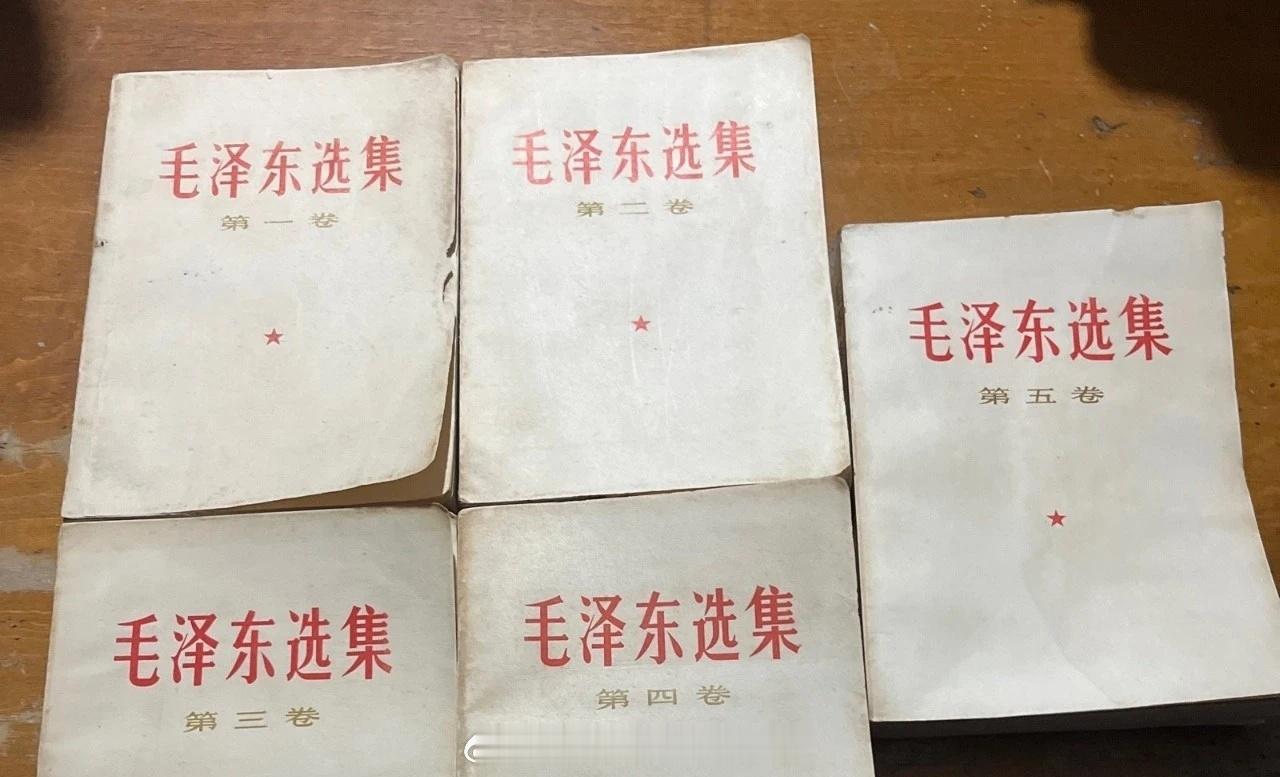 毛泽东选集
第一卷
毛泽东选集
第二卷
毛泽东选集
第五卷
毛泽东选集
第三卷
毛泽东选集
第四卷